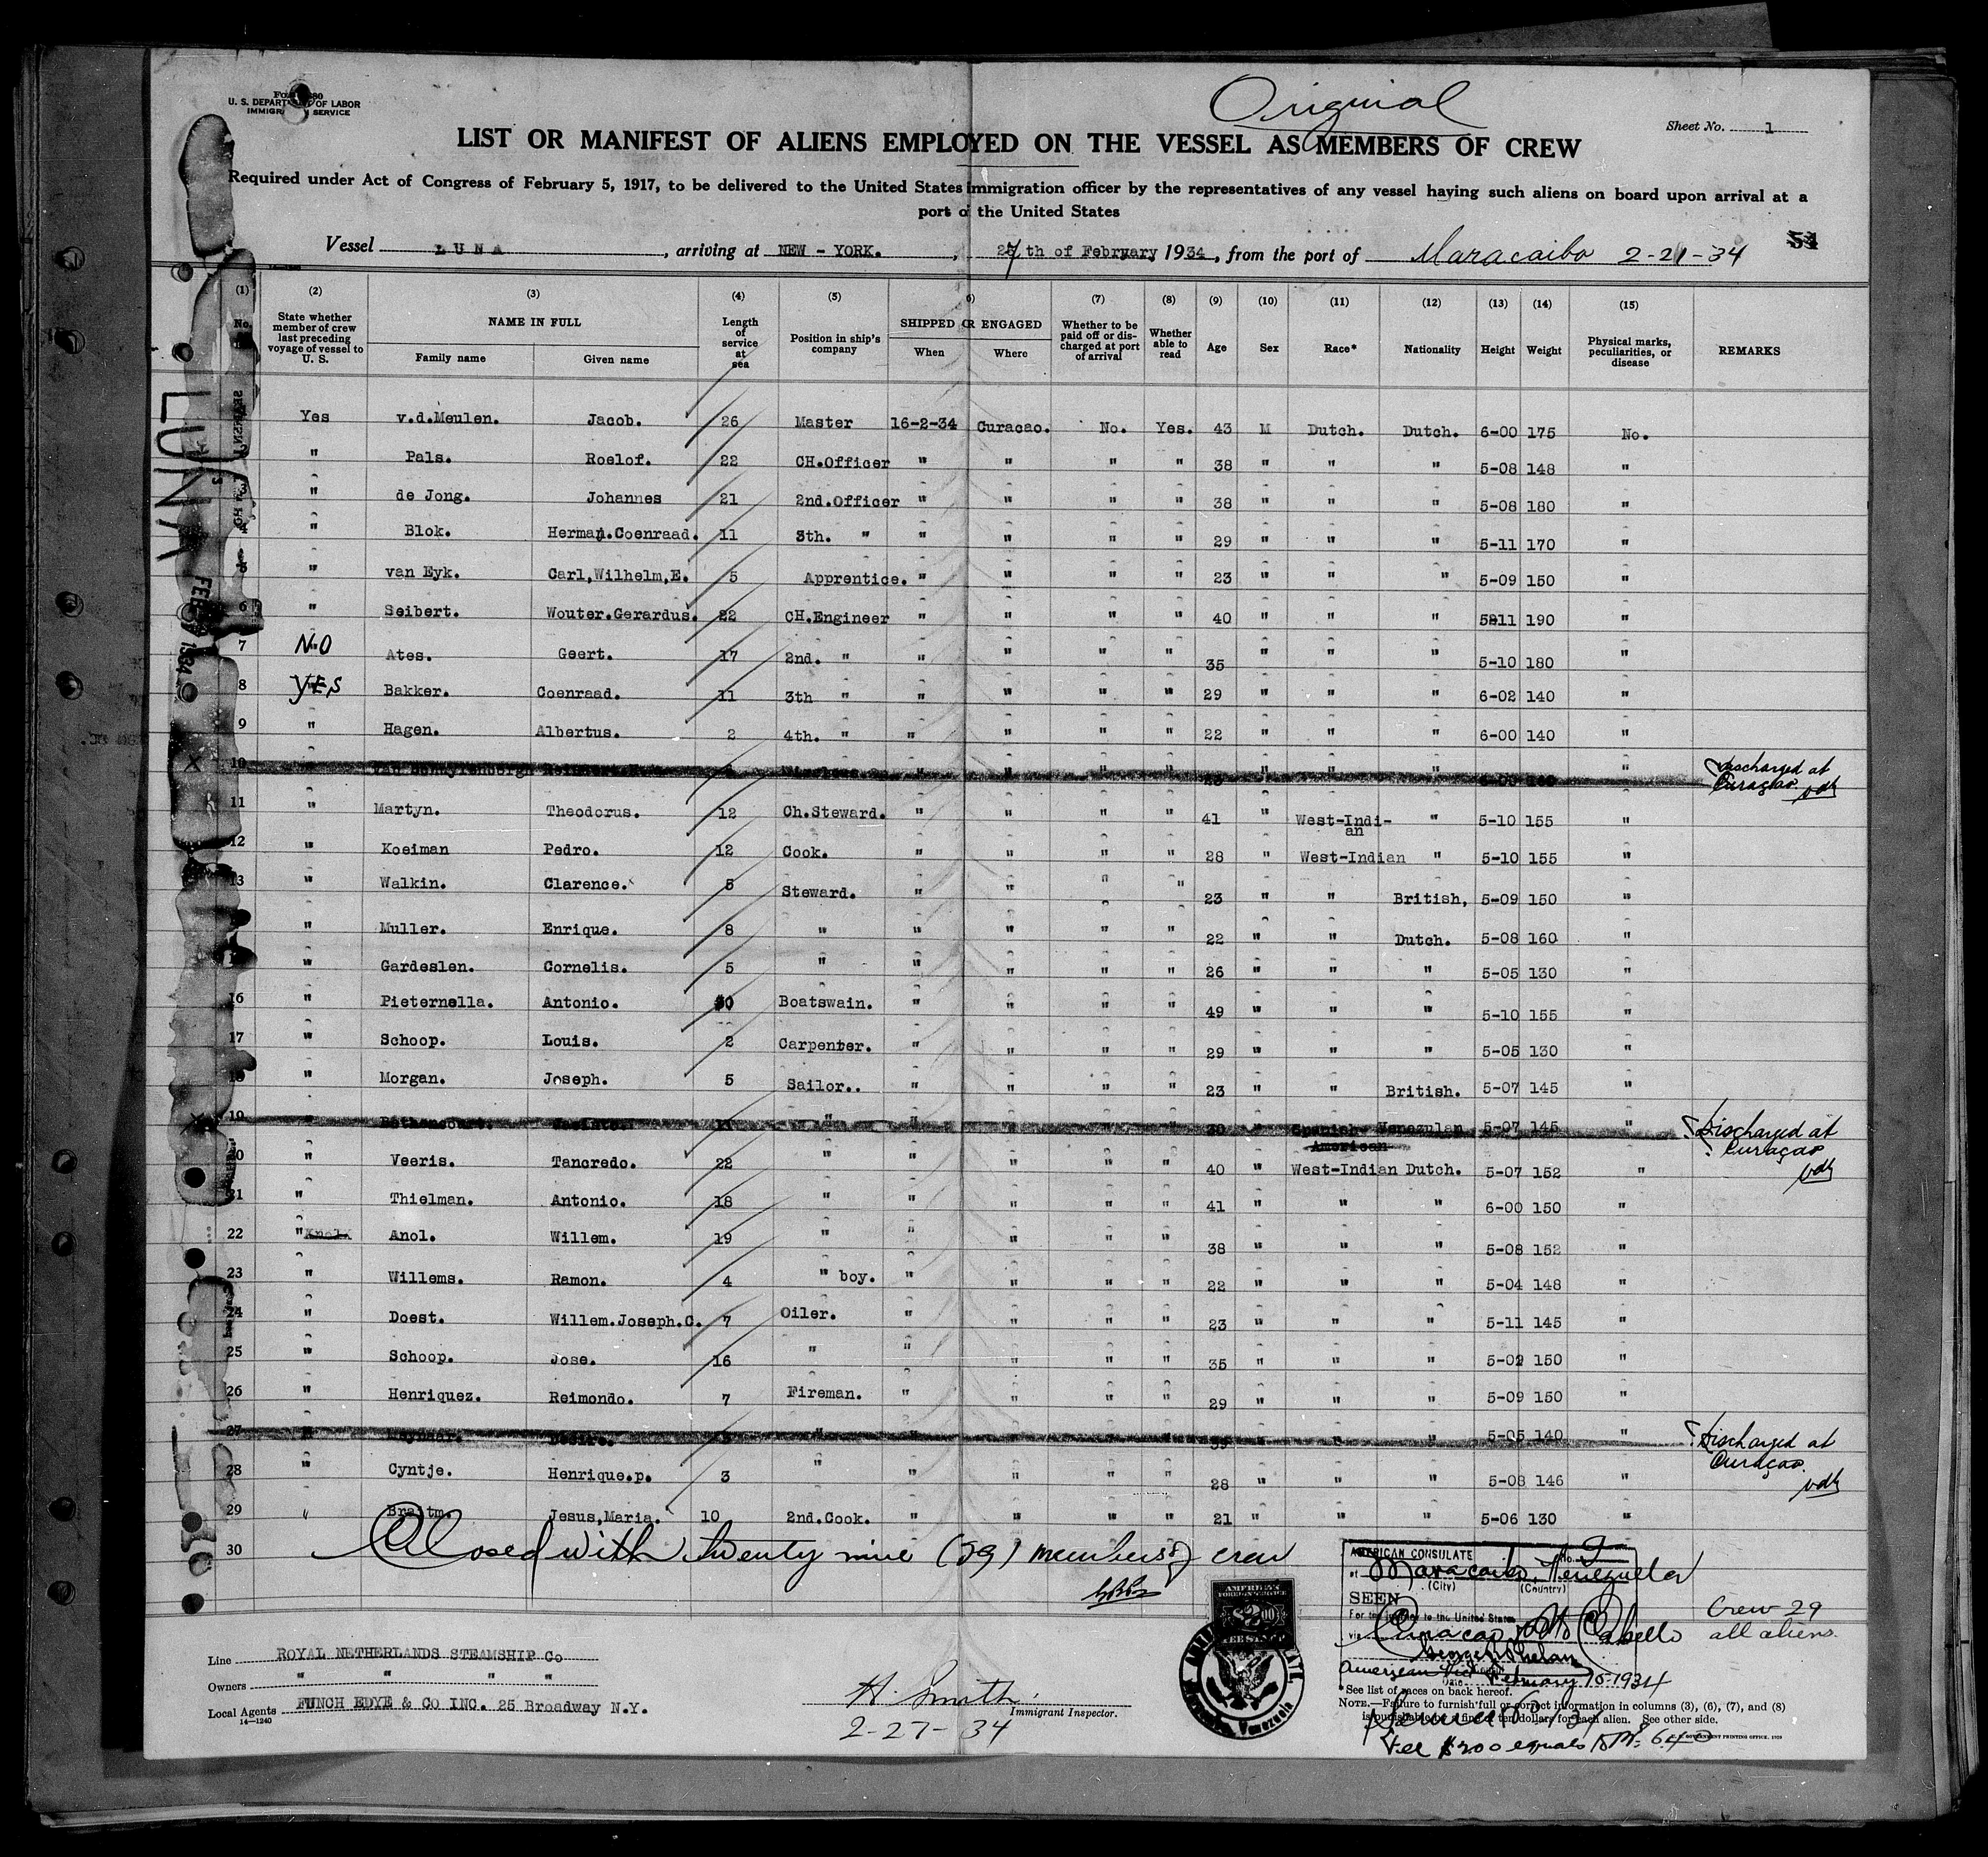 U. S. DEPARTMENT OF LABOR
IMMIGRATION SERVICE
Original
Sheet No. 1
LIST OR MANIFEST OF ALIENS EMPLOYED ON THE VESSEL AS MEMBERS OF CREW
Required under Act of Congress of February 5, 1917, to be delivered to the United States immigration officer by the representatives of any vessel having such aliens on board upon arrival at a
port of the United States
Vessel LUNA, arriving at NEW - YORK., 27th of February 1934, from the port of Maracaibo 2-21-34
54
(1) (2) (3) (4) (5) (6) (7) (8) (9) (10) (11) (12) (13) (14) (15)
No. State whether member of crew last preceding voyage of vessel to U. S. NAME IN FULL Family name Given name Length of service at sea Position in ship's company SHIPPED OR ENGAGED When Where Whether to be paid off or discharged at port of arrival Whether able to read Age Sex Race* Nationality Height Weight Physical marks, peculiarities, or disease REMARKS
LUNA
Yes v.d.Meulen. Jacob. 26 Master 16-2-34 Curacao. No. Yes. 43 M Dutch. Dutch. 6-00 175 No.
" Pals. Roelof. 22 CH.Officer " " " " 38 " " " 5-08 148 "
3 " de Jong. Johannes 21 2nd.Officer " " " " 38 " " " 5-08 180 "
4 " Blok. Herman.Coenraad. 11 3th. " " " " " 29 " " " 5-11 170 "
5 " van Eyk. Carl,Wilhelm,E. 5 Apprentice. " " " " 23 " " " 5-09 150 "
6 " Seibert. Wouter.Gerardus. 22 CH.Engineer " " " " 40 " " " 5-11 190 "
7 NO Ates. Geert. 17 2nd. " " " " " 35 " " " 5-10 180 "
8 YES Bakker. Coenraad. 11 3th " " " " " 29 " " " 6-02 140 "
9 " Hagen. Albertus. 2 4th. " " " " " 22 " " " 6-00 140 "
X 10 Discharged at Curaçao. vdM
11 " Martyn. Theodorus. 12 Ch.Steward. " " " " 41 " West-Indian " 5-10 155 "
12 " Koeiman Pedro. 12 Cook. " " " " 28 " West-Indian " 5-10 155 "
13 " Walkin. Clarence. 5 Steward. " " " " 23 " " British, 5-09 150 "
" Muller. Enrique. 8 " " " " " 22 " " Dutch. 5-08 160 "
" Gardeslen. Cornelis. 5 " " " " " 26 " " " 5-05 130 "
16 " Pieternella. Antonio. Boatswain. " " " " 49 " " " 5-10 155 "
17 " Schoop. Louis. 2 Carpenter. " " " " 29 " " " 5-05 130 "
18 " Morgan. Joseph. 5 Sailor.. " " " " 23 " " British. 5-07 145 "
X 19 " Bethencourt. 11 " " " " " 30 " Spanish American Venezulan 5-07 145 " Discharged at Curaçao vdM
20 " Veeris. Tancredo. 22 " " " " " 40 " West-Indian Dutch. 5-07 152 "
21 " Thielman. Antonio. 18 " " " " " 41 " " " 6-00 150 "
22 " Knol. Anol. Willem. 19 " " " " " 38 " " " 5-08 152 "
23 " Willems. Ramon. 4 " boy. " " " " 22 " " " 5-04 148 "
24 " Doest. Willem.Joseph.C. 7 Oiler. " " " " 23 " " " 5-11 145 "
25 " Schoop. Jose. 16 " " " " " 35 " " " 5-02 150 "
26 " Henriquez. Reimondo. 7 Fireman. " " " " 29 " " " 5-09 150 "
27 " Desire. " " " " " 39 " " " 5-05 140 " Discharged at Curaçao. vdM
28 " Cyntje. Henrique.p. 3 " " " " " 28 " " " 5-08 146 "
29 " Braitm. Jesus,Maria. 10 2nd.Cook. " " " " 21 " " " 5-06 130 "
30 Closed with twenty nine (29) members of crew
AMERICAN CONSULATE No. 2
at Maracaibo, Venezuela
(City) (Country)
SEEN
For the journey to the United States
via Curacao Pto Cabello
George R Phelan
American Vice Consul
Date February 15-1934
Crew 29
all aliens.
Line ROYAL NETHERLANDS STEAMSHIP Co
Owners " " " "
Local Agents FUNCH EDYE & CO INC. 25 Broadway N.Y.
14-1240
H. Smith.
Immigrant Inspector.
2-27-34
AMERICAN FOREIGN SERVICE
$2.00
FEE STAMP
Maracaibo, Venezuela
* See list of races on back hereof.
NOTE.—Failure to furnish full or correct information in columns (3), (6), (7), and (8)
is punishable by a fine of ten dollars for each alien. See other side.
Service No 131
Fee $2.00 equals Bs. 6.40